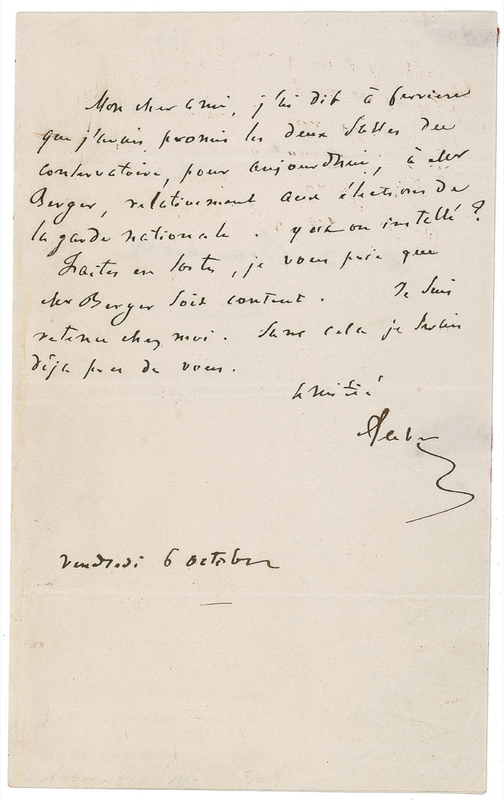 Mon cher ami, j'ai dit à ferriere
que j'avais promis les deux salles du
conservatoire, pour aujourdhui, à Mr
Berger, relativement aux élections de
la garde nationale. y est on installé ?
Faites en sorte, je vous prie que
Mr Berger soit content. Je suis
retenu chez moi. Sans cela je serais
déja près de vous.
amitié
Auber
vendredi 6 octobre